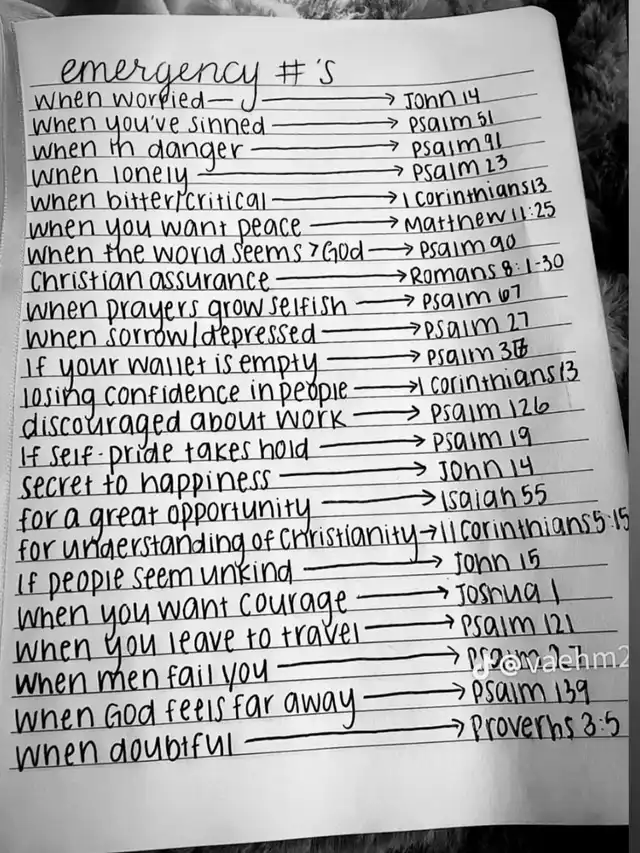 emergency #'s
when worried → John 14
when you've sinned → Psalm 51
when in danger → Psalm 91
when lonely → Psalm 23
when bitter/critical → 1 Corinthians 13
when you want peace → Matthew 11:25
when the world seems > God → Psalm 90
Christian assurance → Romans 8:1-30
when prayers grow selfish → Psalm 67
when sorrow/depressed → Psalm 27
If your wallet is empty → Psalm
losing confidence in people → 1 Corinthians 13
discouraged about work → Psalm 126
If self-pride takes hold → Psalm 19
secret to happiness → John 14
for a great opportunity → Isaiah 55
for understanding of Christianity → 11 Corinthians 5:15
If people seem unkind → John 15
when you want courage → Joshua 1
when you leave to travel → Psalm 121
when men fail you → Psalm 27
@vaehm2
when God feels far away → Psalm 139
when doubtful → Proverbs 3:5